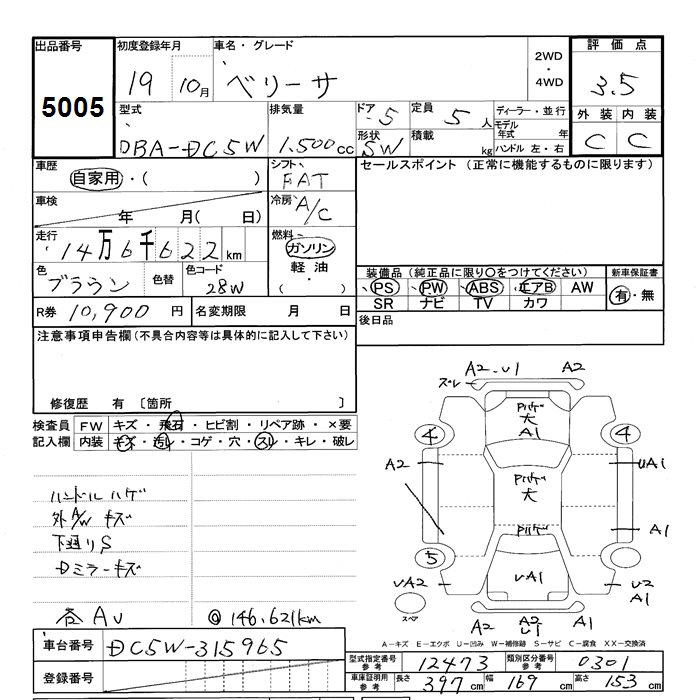 出品番号 初度登録年月 車名・グレード 2WD・4WD 評価点
5005 19 10月 ベリーサ 3.5
型式 排気量 ドア 5 定員 5人 ディーラー・並行 外装 内装
DBA-DC5W 1.500cc 形状 SW 積載 kg モデル年式 年 ハンドル 左・右 C C
車歴 自家用・( ) シフト FAT セールスポイント (正常に機能するものに限ります)
車検 年 月( 日) 冷房 A/C
走行 14万6千622km 燃料 ガソリン
軽油
( )
色 ブラウン 色替 色コード 28W 装備品 (純正品に限り○をつけてください) 新車保証書
PS PW ABS エアB AW 有・無
SR ナビ TV カワ
R券 10,900円 名変期限 月 日 後日品
注意事項申告欄 (不具合内容等は具体的に記入して下さい)
修復歴 有 〔箇所 〕
検査員 FW キズ・飛石・ヒビ割・リペア跡・×要
記入欄 内装 キズ・汚レ・コゲ・穴・スレ・キレ・破レ
ハンドルハゲ
外A/Wキズ
下廻りS
Dミラーキズ
各AU @146,621km
A2-U1 A2
スレ
Pハゲ
大
A1
4 4
A2 UA1
Pハゲ
大
A1
Pハゲ
5
UA2 UA1 U2
A1
スペア
A2 A2 A2
U1
A-キズ E-エクボ U-凹み W-補修跡 S-サビ C-腐食 XX-交換済
車台番号 DC5W-315965
型式指定番号 参考 12473 類別区分番号 参考 0301
登録番号 車庫証明用 参考 長さ 397cm 幅 169cm 高さ 153cm